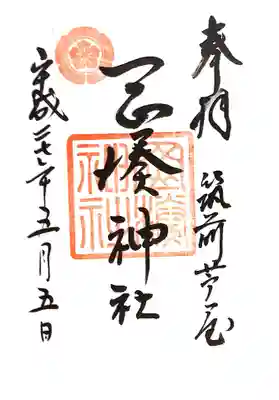 奉拝
筑前芦屋
岡湊神社
平成二七年五月五日
岡湊
神社